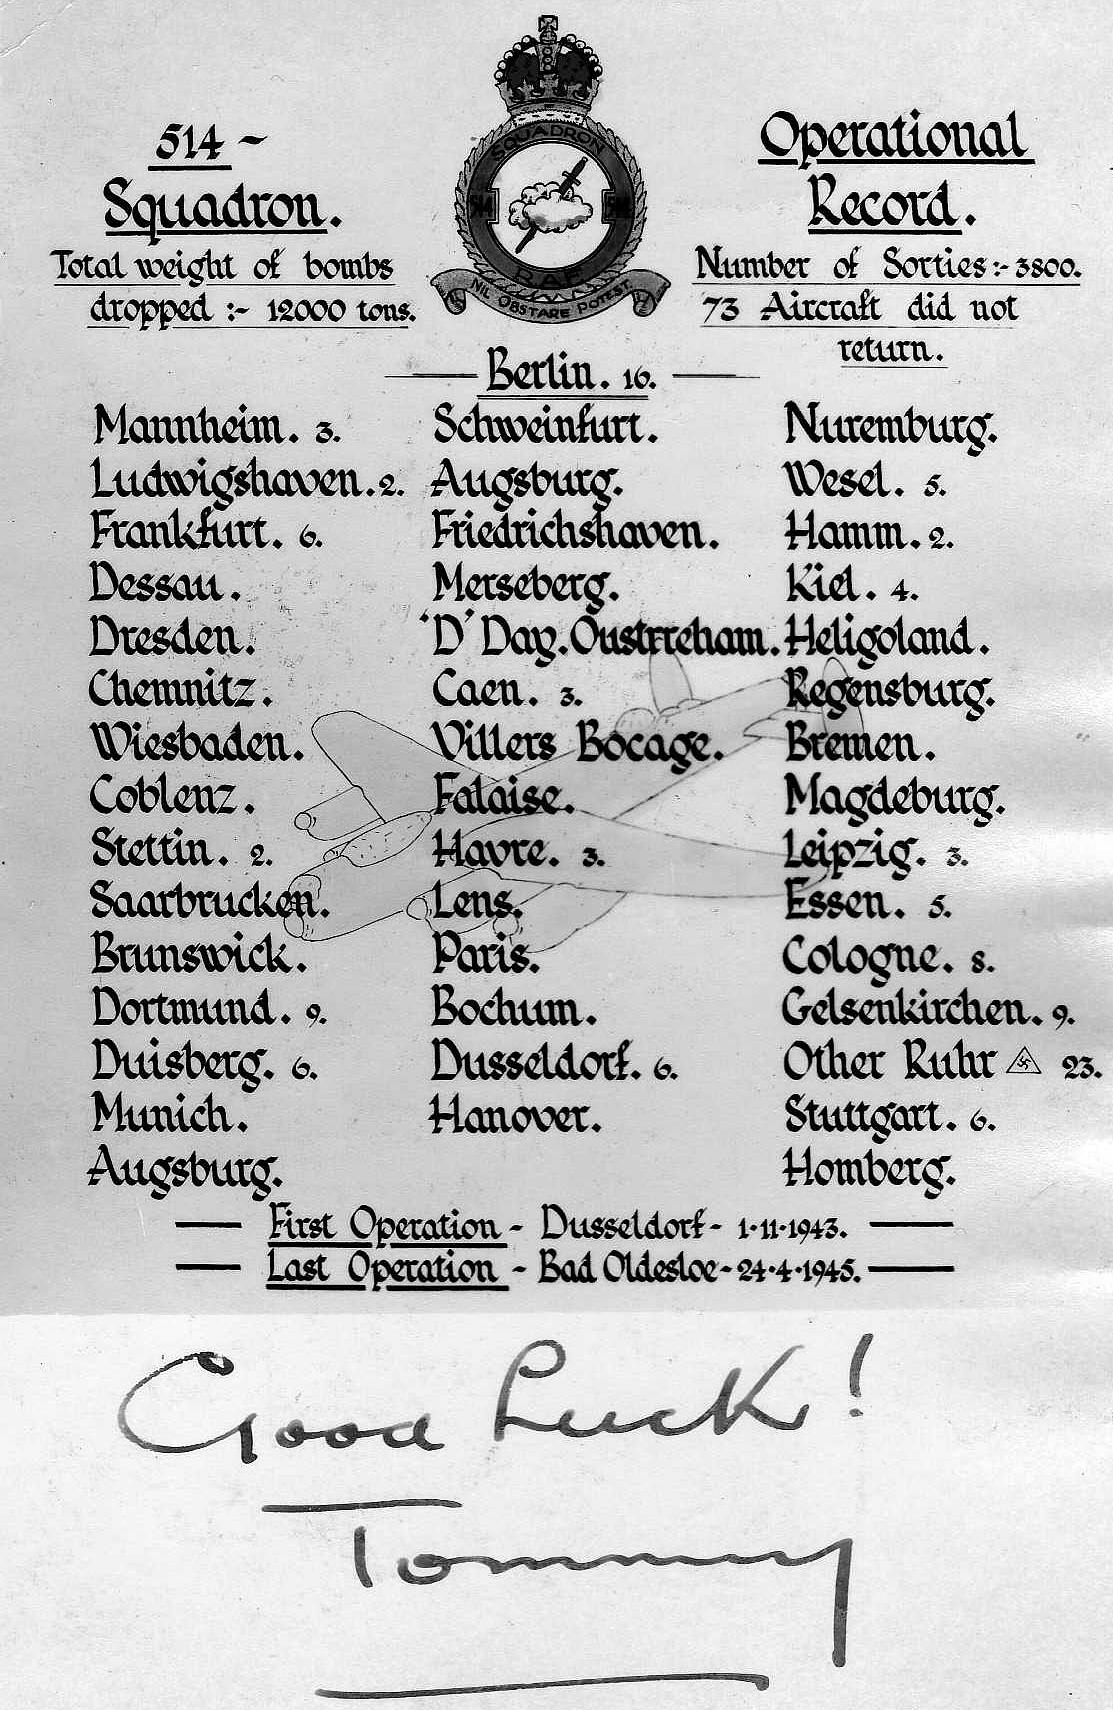 514 ~
Squadron.
Total weight of bombs
dropped :- 12000 tons.
SQUADRON
514 514
R.A.F.
NIL OBSTARE POTEST.
Operational
Record.
Number of Sorties :- 3800.
73 Aircraft did not
return.
Berlin. 16.
Mannheim. 3. Schweinfurt. Nuremburg.
Ludwigshaven. 2. Augsburg. Wesel. 5.
Frankfurt. 6. Friedrichshaven. Hamm. 2.
Dessau. Merseberg. Kiel. 4.
Dresden. 'D' Day. Oustrreham. Heligoland.
Chemnitz. Caen. 3. Regensburg.
Wiesbaden. Villers Bocage. Bremen.
Coblenz. Falaise. Magdeburg.
Stettin. 2. Havre. 3. Leipzig. 3.
Saarbrucken. Lens. Essen. 5.
Brunswick. Paris. Cologne. 8.
Dortmund. 9. Bochum. Gelsenkirchen. 9.
Duisberg. 6. Dusseldorf. 6. Other Ruhr 23.
Munich. Hanover. Stuttgart. 6.
Augsburg. Homberg.
First Operation - Dusseldorf - 1·11·1943.
Last Operation - Bad Oldesloe - 24·4·1945.
Good Luck!
Tommy